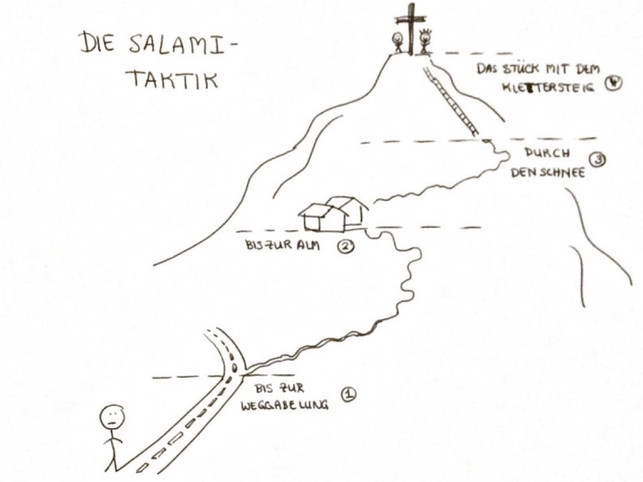 DIE SALAMI-
TAKTIK
DAS STÜCK MIT DEM
KLETTERSTEIG 4
DURCH 3
DEN SCHNEE
BIS ZUR ALM 2
BIS ZUR
WEGGABELUNG 1